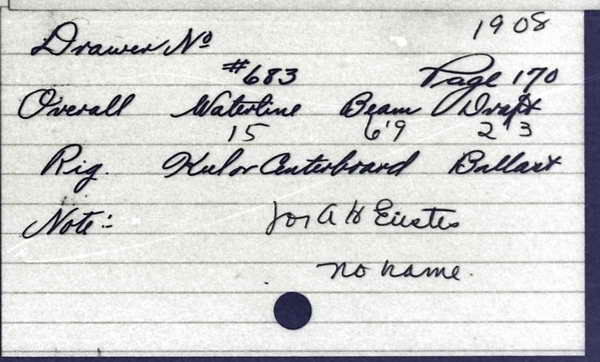 1908
Drawer No
#683 Page 170
Overall Waterline Beam Draft
15 6'9 2 3
Rig. Keel or Centerboard Ballast
Note:- for A H Eustis
no name.